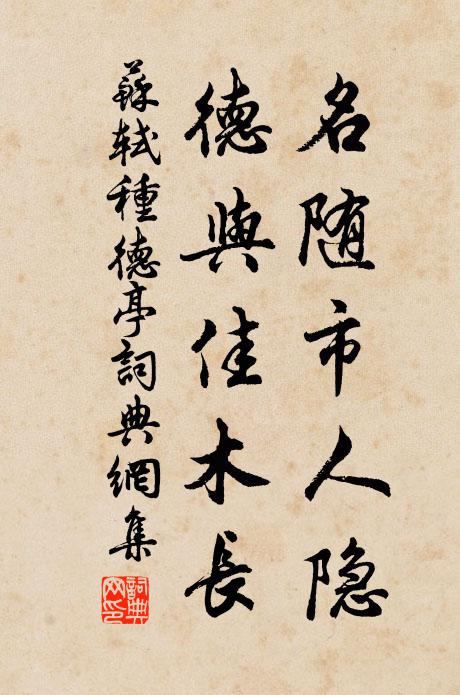 名随市人隐
德與佳木長
蘇軾種德亭詞典網集
詞典
网印